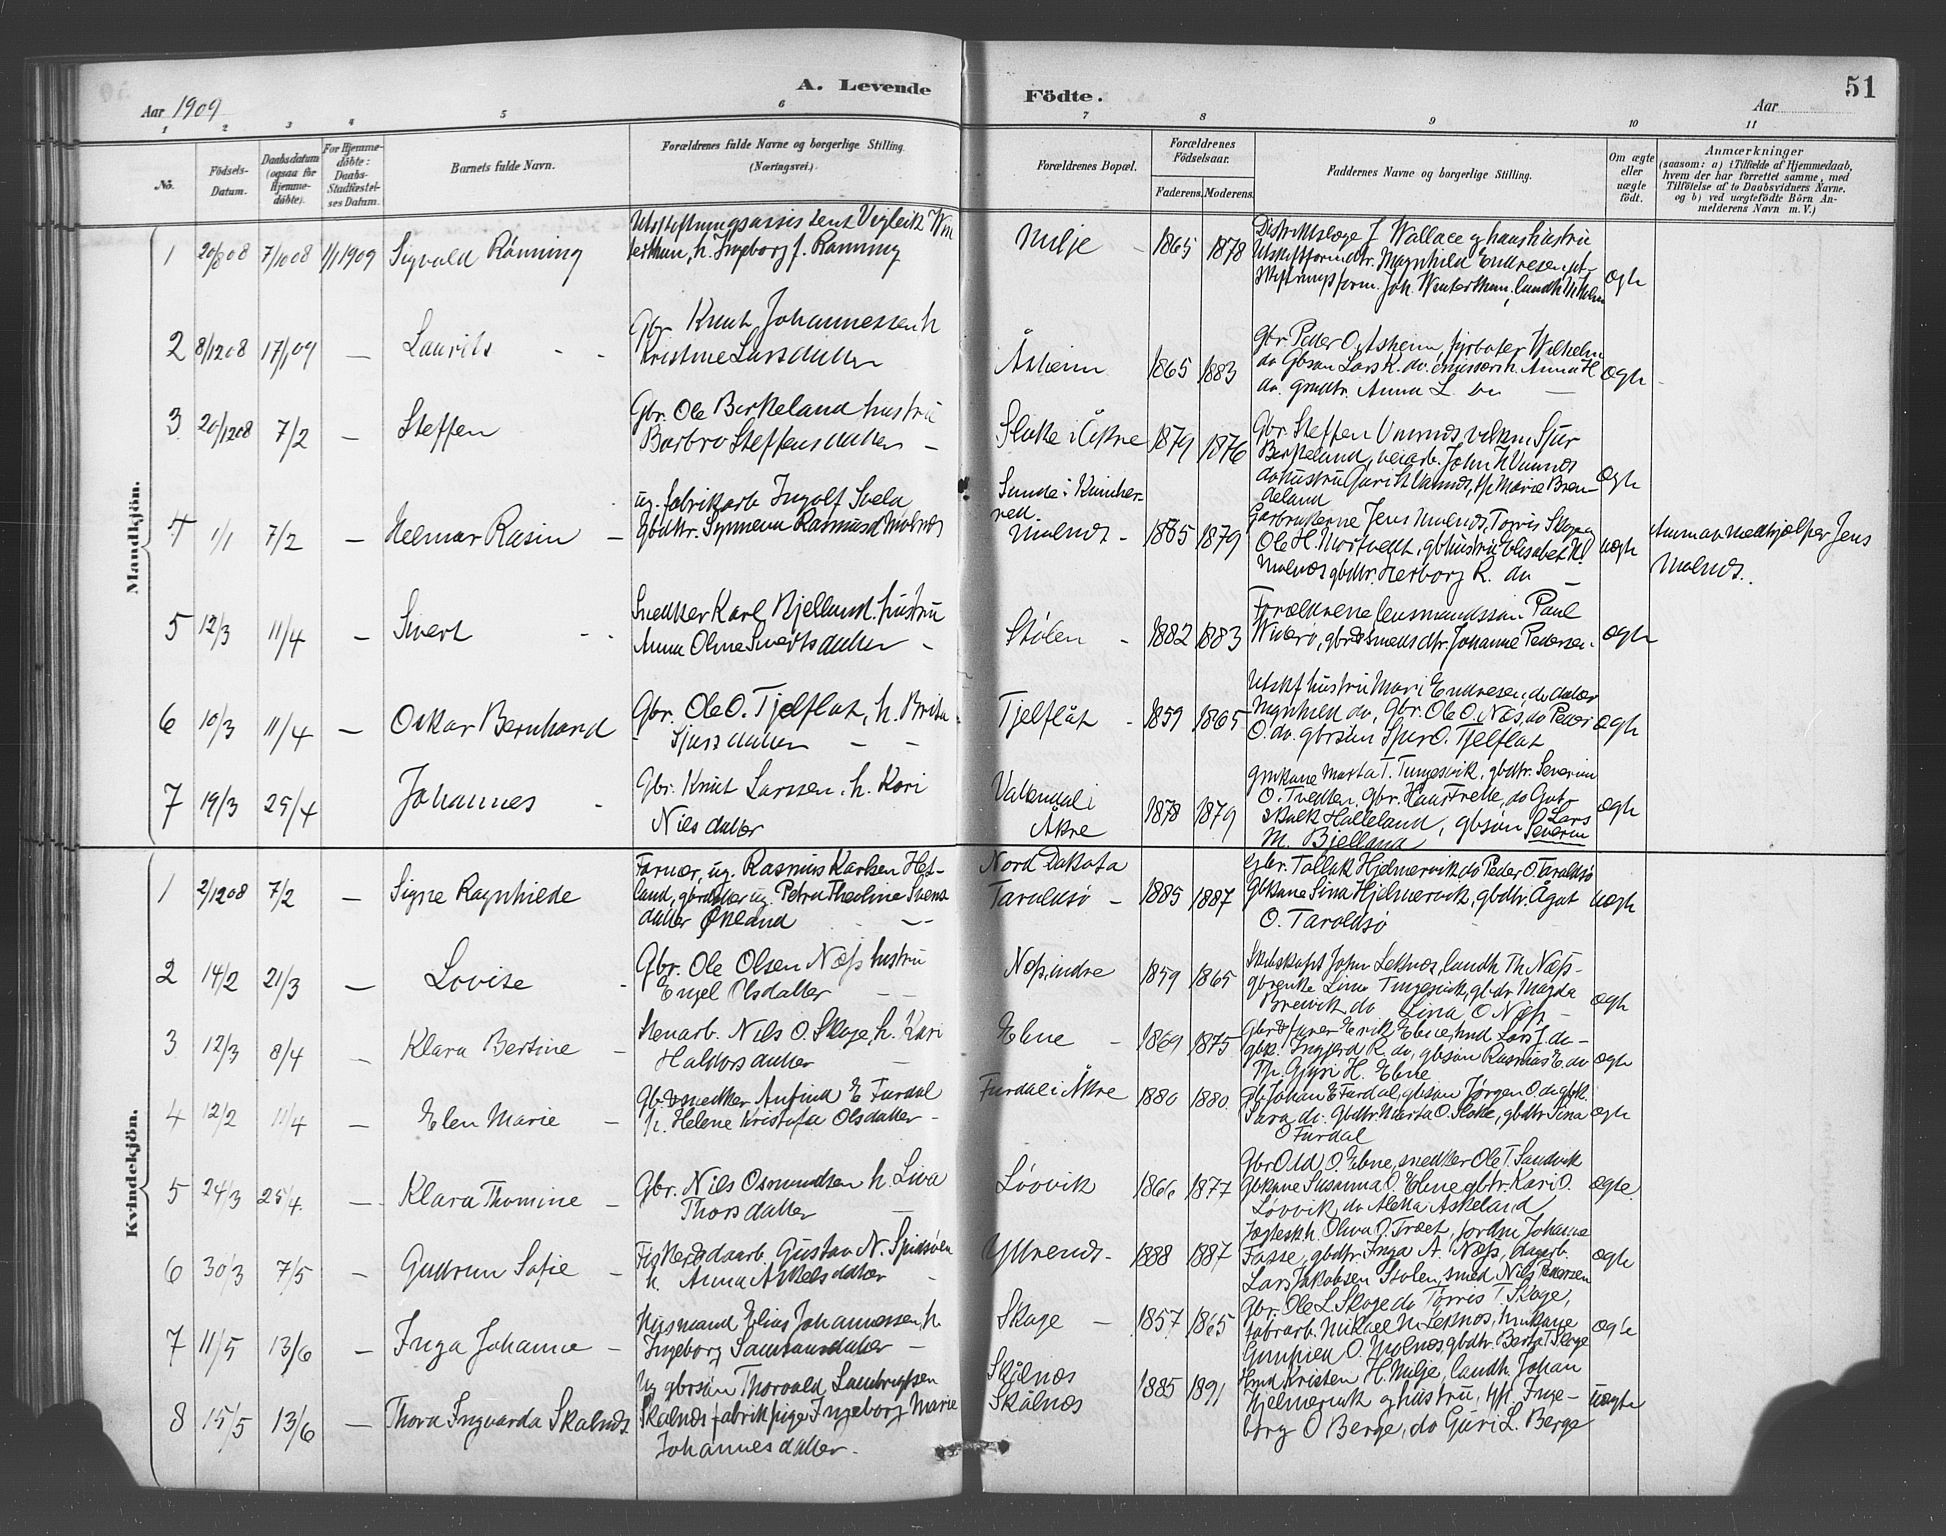 A. Levende Födte.
51
Aar 1909
Aar
1 2 3 4 5 6 7 8 9 10 11
No.
Födsels-Datum.
Daabsdatum (ogsaa for Hjemmedöbte).
For Hjemmedöbte: Daabs-Stadfæstelses Datum.
Barnets fulde Navn.
Forældrenes fulde Navne og borgerlige Stilling. (Næringsvei.)
Forældrenes Bopæl.
Forældrenes Födselsaar.
Faderens. Moderens.
Faddernes Navne og borgerlige Stilling.
Om ægte eller uægte födt.
Anmærkninger
(saasom: a) i Tilfælde af Hjemmedaab, hvem der har forrettet samme, med Tilföielse af to Daabsvidners Navne, og b) ved uægtefödte Börn Anmelderens Navn m. V.)
Mandkjön.
1 20/8 08 7/10 08 1/1 1909 Sigvald Rönning
Utskiftningsassistent Vigleik Winterthun, h. Ingeborg f. Rönning
Milje 1865 1878
Distriktslæge J Wallace og hans hustru
Magnhild Endresen
Joh. Winterthun, landh
ægte
2 8/12 08 17/1 09 — Laurits
Gbr. Knut Johannessen h
Kristine Larsdatter
Åsheim 1865 1883
Gbr. Peder O. Åsheim, fyrbøter Wilhelm
do Gbsøn Lars K. do, h. Anna H
do. gmdtr. Anna L do
ægte
3 20/12 08 7/2 — Steffen
Gbr. Ole Birkeland hustru
Barbro Steffensdatter
Sloke i Åkre 1879 1876
Gbr. Steffen Unnes, Sjur
Birkeland, veiarb. John H Unnes
do hustru Guri St Unnes, pp Marie Brendeland
ægte
4 1/1 7/2 — Helmar Rasin
ug. fabrikarb Ingolf Svela
gbdtr. Synneva Rasmusd Molnes
Sunde i Kvinherred
Molnes 1885 1879
Gardbrukerne Jens Molnes, Torris Skoge
Ole H. Nortvedt, gbhustru Elisabet N.
Molnes gbdtr. Herborg R. do
uægte
Anm av medhjælper Jens
Molnes.
5 12/3 11/4 — Sivert
Snedker Karl Bjelland, hustru
Anna Oline Sivertsdatter
Stølen 1882 1883
Forældrene lensmandssøn Paul
Widerö, gbr & smedsdtr. Johanne Pedersen
ægte
6 10/3 11/4 — Oskar Bernhard
Gbr. Ole O. Tjelflat, h. Brita
Sjursdatter
Tjelflåt 1859 1865
Utskf hustru Mari Endresen, do datter
Magnhild do, Gbr. Ole O. Næs, do Peder
O. do. gbrsøn Sjur O. Tjelflat
ægte
7 19/3 25/4 Johannes
Gbr. Knut Larssen, h. Kari
Nilsdatter
Valendal i
Åkre 1878 1879
Gmkone Marta T. Tungesvik, gbdtr. Severine
O. Tvedten, Gbr. Hans Frette, do Gut-
skalk Halleland, gbsøn Lars
Severin
M. Bjelland
ægte
Kvindekjön.
1 2/12 08 7/2 — Signe Ragnhilde
Farmer, ug. Rasmus Karlsen Hetland, gbrdatter ug. Petra Theoline Svensdatter Økland
Nord Dakota
Taroldsø 1885 1887
Gbr. Tollak Hjelmervik do Peder O. Taroldsø
Gbkone Sina Hjelmervik, gbdtr. Ågat
O. Taroldsø
uægte
2 14/2 21/3 — Lovise
Gbr. Ole Olsen Næss hustru
Engel Olsdatter
Næss, indre 1859 1865
Skibskapt John Leknes, landh Th. Næss
gbrenke Lina Tungesvik, gbdr. Magda
Breivik do Lina O Næss
ægte
3 12/3 8/4 Klara Bertine
Stenarb. Nils O. Skoge, h. Kari
Haldorsdatter
Ebne 1869 1875
Gbr & furer Erik Ebne, hmd Lars J. do
gbk. Ingjerd R. do, gbsøn Rasmus E do
Pp. Gyri H. Ebne
ægte
4 12/2 11/4 — Elen Marie
Gb & snedker Anfind E Furdal
h. Helene Kristofa Olsdatter
Furdal i Åkre 1880 1880
Gb. Johan E Furdal gbsøn Jørgen O. do gbk.
Sara do. Gbdtr. Marta O. Sloke, gbdtr Sina
O Furdal
ægte
5 24/3 25/4 — Klara Thomine
Gbr. Nils Osmundsen h. Liva
Thorsdatter
Løovik 1866 1877
Gbr Old O. Ebne, snedker Ole T. Sandvik
Gbkone Susanna O. Ebne gbtr. Kari O.
Løvvik, do Aletta Askeland
ægte
6 30/3 7/5 — Gudrun Sofie
Fisker & daarb. Gustav N. Spidsøen
h. Anna Askelsdatter
Yttrenes 1888 1887
Jægteskh. Oliva O. Træet, jordm Johanne
Fasse, gbdtr. Inga A. Næss, dagarb.
Lars Jakobsen Stolen, smed Nils Pedersen
ægte
7 11/5 13/6 — Inga Johanne
Husmand Elias Johannessen, h.
Ingeborg Samsonsdatter
Skoge 1857 1865
Gbr. Ole L. Skoge do Torris T. Skoge,
fabrarb. Mikael M. Leknes, hmkone
Gunhild O. Molnes, gbdtr. Berta T. Skoge
ægte
8 15/5 13/6 — Thora Ingvarda Skålnes
Ug gbrsøn Thorvald Lambrigtsen
Skålnes fabrikpige Ingeborg Marie
Johannesdatter
Skålnes
Skålnes 1885 1891
Hmd Kristen H. Milje, landh. Johan
Hjelmervik og hustru, pp. Inge-
borg O Berge, do Guri L. Berge
uægte